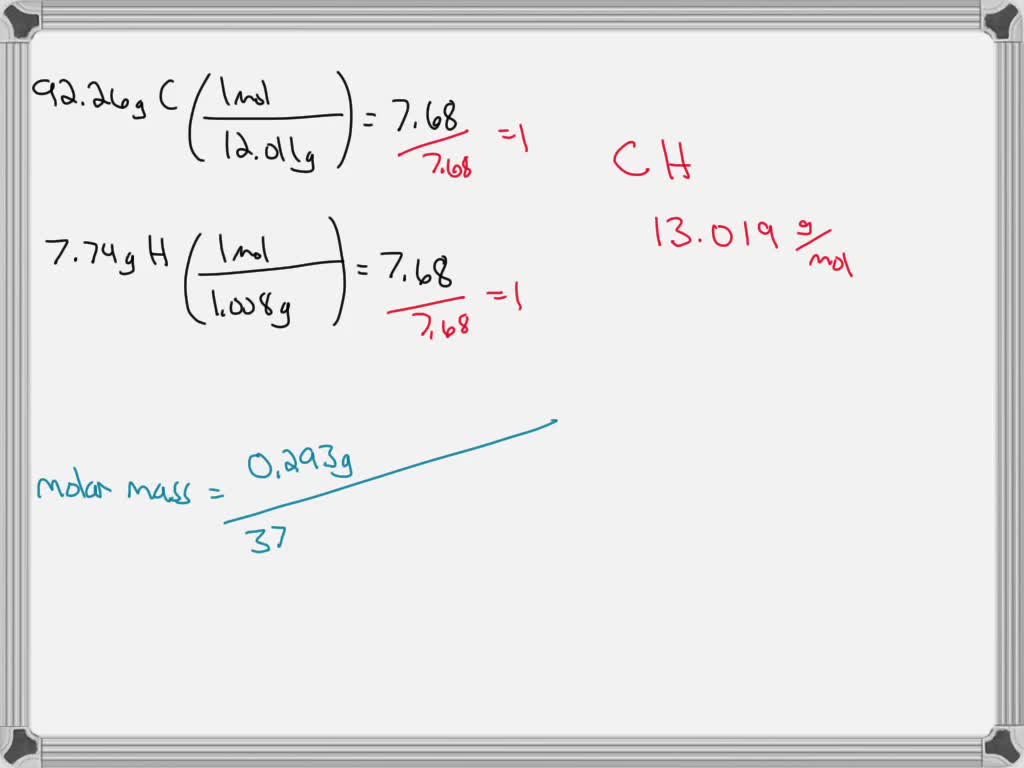 92.26g C (1mol / 12.011g) = 7.68 / 7.68 = 1
CH
13.019 g/mol
7.74g H (1mol / 1.008g) = 7.68 / 7.68 = 1
molar mass = 0.293g / 37